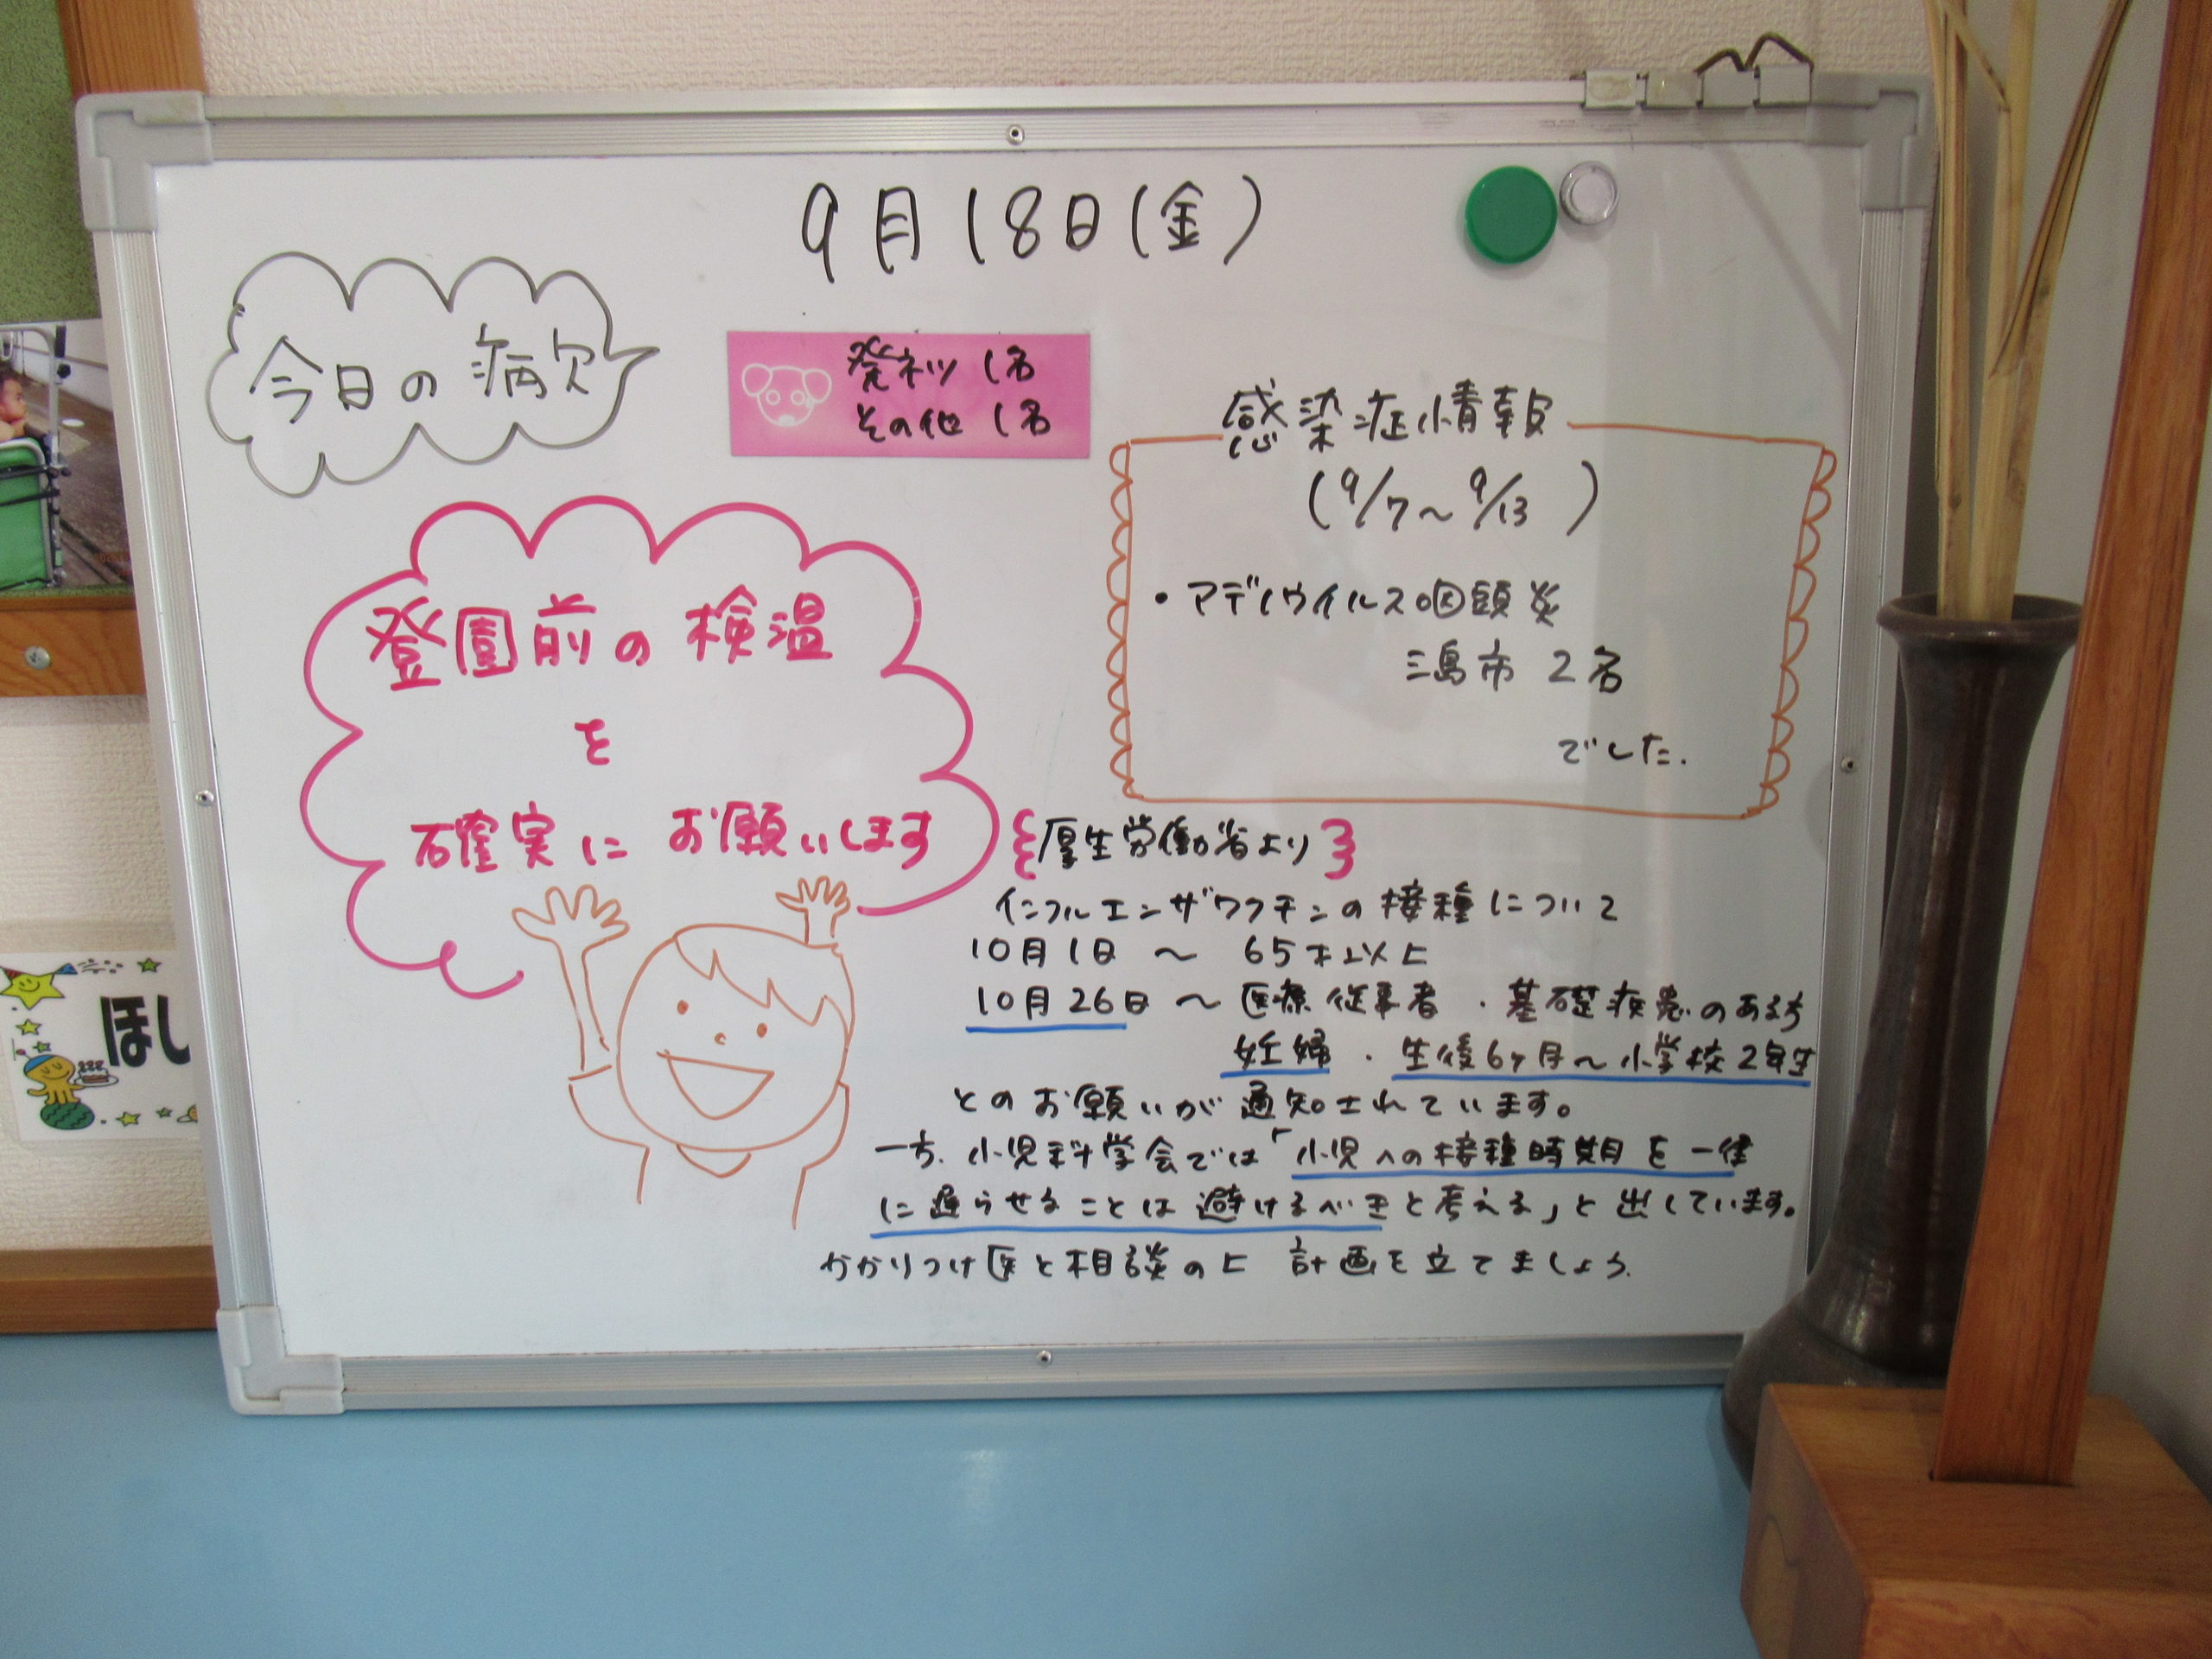 9月18日(金)
今日の病欠
発ネツ 1名
その他 1名
感染症情報
(9/7〜9/13)
・アデノウイルス咽頭炎
三島市 2名
でした.
登園前の検温
を
確実に お願いします
{厚生労働省より}
インフルエンザワクチンの接種について
10月1日 〜 65才以上
10月26日 〜 医療従事者 ・基礎疾患のある方
妊婦 ・ 生後6ヶ月〜小学校2年生
とのお願いが通知されています。
一方、小児科学会では「小児への接種時期を一律
に遅らせることは避けるべきと考える」と出しています。
かかりつけ医と相談の上 計画を立てましょう.
ほし